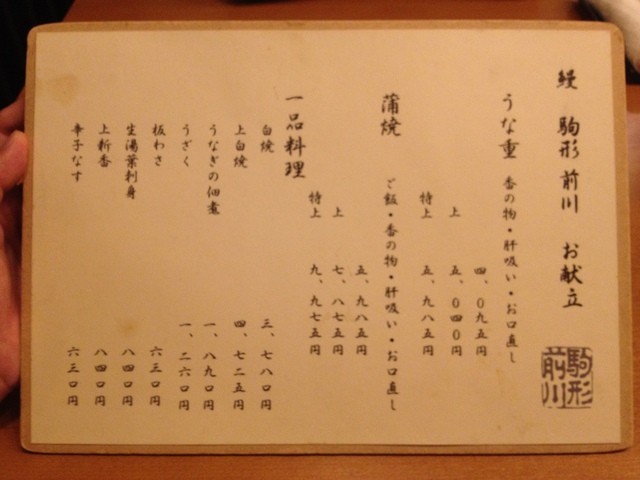 鰻 駒形 前川 お献立
駒形前川
うな重 香の物・肝吸い・お口直し
四、〇九五円
上 五、〇四〇円
特上 五、九八五円
蒲焼 ご飯・香の物・肝吸い・お口直し
五、九八五円
上 七、八七五円
特上 九、九七五円
一品料理
白焼 三、七八〇円
上白焼 四、七二五円
うなぎの佃煮 一、八九〇円
うざく 一、二六〇円
板わさ 六三〇円
生湯葉刺身 八四〇円
上新香 八四〇円
辛子なす 六三〇円